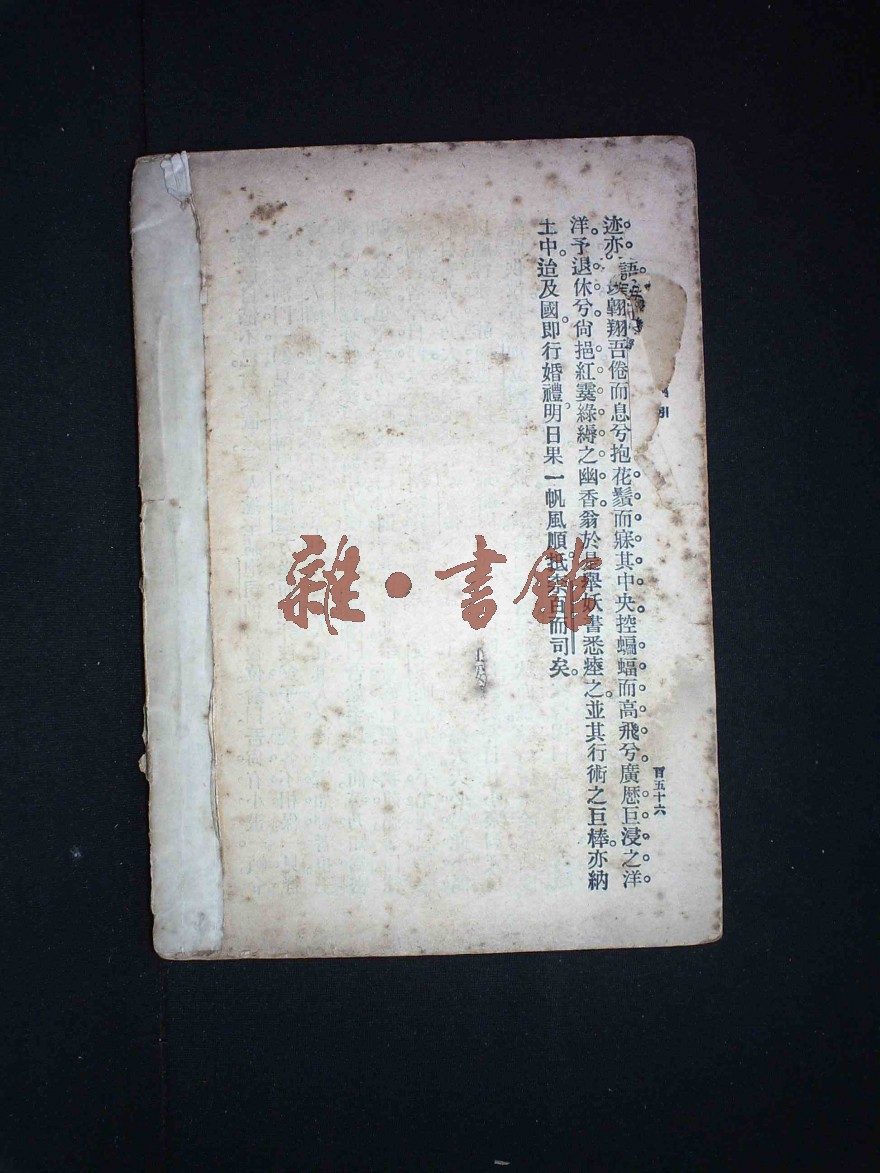 迹亦 翺翔吾倦而息兮抱花鬚而寐其中央控蝙蝠而高飛兮廣歷巨浸之洋
洋予退休兮尙挹紅蕓綠縟之幽香翁於是舉妖書悉瘞之並其行術之巨棒亦納
土中迨及國卽行婚禮明日果一帆風順抵 百而司矣
語
引
百五十六
雜·書館